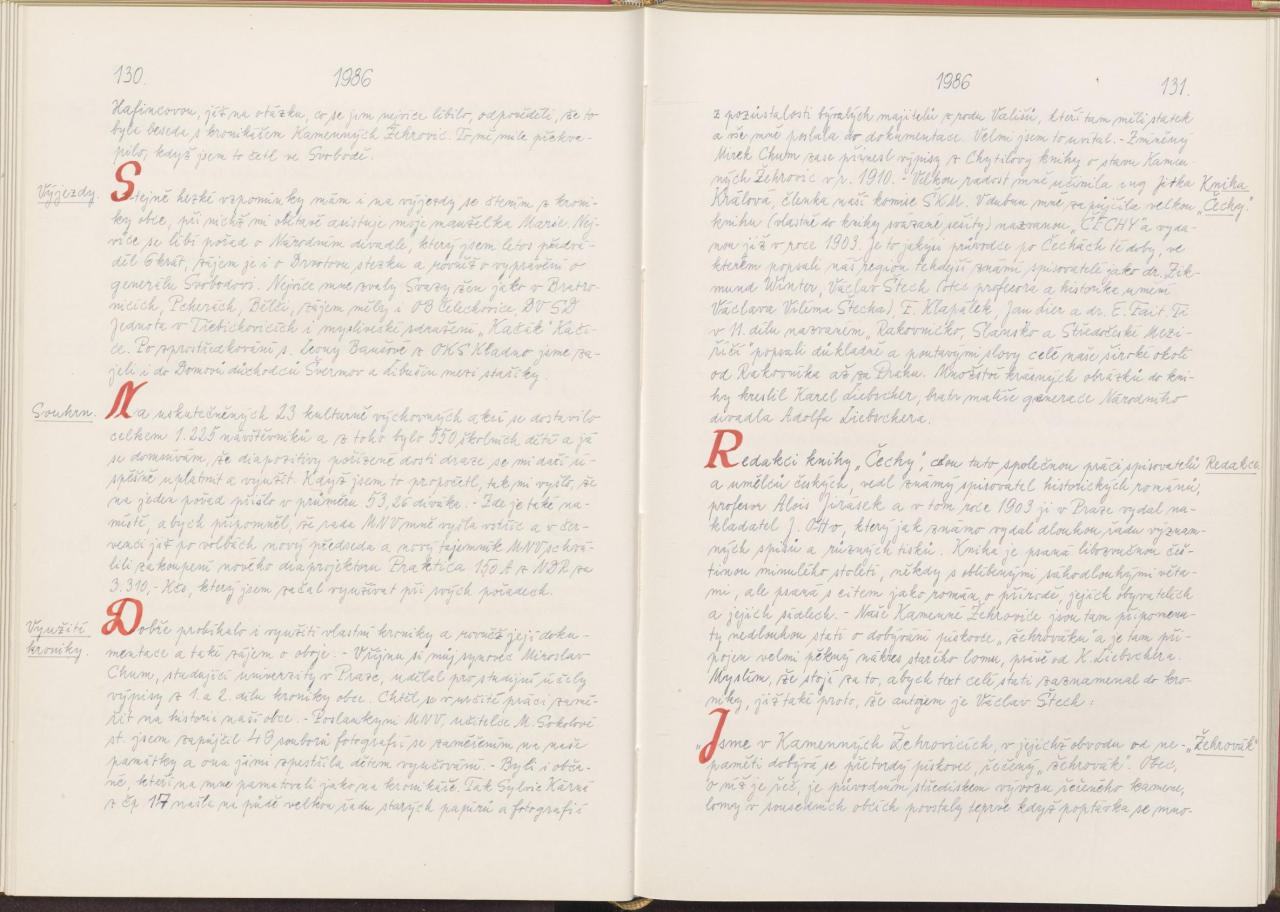 130.
1986
Hafincovou, jíž na otázku, co se jim nejvíce líbilo, odpověděli, že to
byla beseda s kronikářem Kamenných Žehrovic. To mě mile překva-
pilo, když jsem to četl ve Svobodě.
Výjezdy.
Stejně hezké vzpomínky mám i na výjezdy se čtením z kroni-
ky obce, při nichž mi obětavě asistuje moje manželka Marie. Nej-
více se líbí pořad o Národním divadle, který jsem letos předvá-
děl 6krát, zájem je i o Drvotovu stezku a rovněž o vyprávění o
generálu Svobodovi. Nejvíce mne zvaly Svazy žen jako v Bratro-
nicích, Pcherách, Bělči, zájem měly i OB Čelechovice, DV SD
Jednota v Třebichovicích i myslivecké sdružení „Kačák" Kači-
ce. Po zprostředkování s. Leony Baušové z OKS Kladno jsme za-
jeli i do Domovů důchodců Švermov a Libušín mezi stařičky.
Souhrn.
Na uskutečněných 23 kulturně výchovných akcí se dostavilo
celkem 1.225 návštěvníků a z toho bylo 550 školních dětí a já
se domnívám, že diapozitivy pořízené dosti draze, se mi daří ú-
spěšně uplatnit a využít. Když jsem to propočetl, tak mi vyšlo, že
na jeden pořad přišlo v průměru 53,26 diváka. - Zde je také na-
místě, abych připomněl, že rada MNV mně vyšla vstříc a v čer-
venci již po volbách nový předseda a nový tajemník MNV schvá-
lili zakoupení nového diaprojektoru Praktica 150 A z NDR za
3.310,- Kčs, který jsem začal využívat při svých pořadech.
Využití
kroniky.
Dobře probíhalo i využití vlastní kroniky a rovněž její doku-
mentace a také zájem o oboje. - V říjnu si můj synovec Miroslav
Chum, studující university v Praze, udělal pro studijní účely
výpisy z 1. a 2. dílu kroniky obce. Chtěl se v určité práci zamě-
řit na historii naší obce. - Poslankyni MNV, učitelce M. Sokolové
st. jsem zapůjčil 49 souborů fotografií se zaměřením na naše
památky a ona jimi zpestřila dětem vyučování. - Byli i obča-
né, kteří na mne pamatovali jako na kronikáře. Tak Sylvie Kárná
z čp 17 našla na půdě velkou řadu starých papírů a fotografií
1986
131.
z pozůstalosti bývalých majitelů z rodu Vališů, kteří tam měli statek
a vše mně poslala do dokumentace. Velmi jsem to uvítal. - Zmíněný
Mirek Chum zase přinesl výpisy z Chytilovy knihy o stavu Kamen-
ných Žehrovic v r. 1910. - Velkou radost mně učinila ing Jitka
Kniha
„Čechy"
Králová, členka naší komise SKM. V dubnu mně zapůjčila velkou
knihu (vlastně do knihy svázané sešity) nazvanou „ČECHY" a vyda-
nou již v roce 1903. Je to jakýsi průvodce po Čechách té doby, ve
kterém popsali náš region tehdejší známí spisovatelé jako dr. Zik-
mund Winter, Václav Štech (otec profesora a historika umění
Václava Viléma Štecha), F. Klapálek, Jan Lier a dr. E. Fait. Ti
v 11. dílu nazvaném „Rakovnicko, Slánsko a Středočeské Mezi-
říčí" popsali důkladně a poutavými slovy celé naše široké okolí
od Rakovníka až za Prahu. Množství krásných obrázků do kni-
hy kreslil Karel Liebscher, bratr malíře generace Národního
divadla Adolfa Liebschera.
Redakce
Redakci knihy „Čechy", tuto společnou práci spisovatelů
a umělců českých, vedl známý spisovatel historických románů,
profesor Alois Jirásek a v tom roce 1903 ji v Praze vydal na-
kladatel J. Otto, který jak známo vydal dlouhou řadu význam-
ných spisů a různých tisků. Kniha je psaná libozvučnou češ-
tinou minulého století, někdy s oblíbenými sáhodlouhými věta-
mi, ale psaná s citem jako román, o přírodě, jejích obyvatelích
a jejich sídlech. - Naše Kamenné Žehrovice jsou tam připomenu-
ty nedlouhou statí o dobývání pískovce „žehrováku" a je tam při-
pojen velmi pěkný nákres starého lomu, právě od K. Liebschera.
Myslím, že stojí za to, abych text celé stati zaznamenal do kro-
niky, již také proto, že autorem je Václav Štech:
„Žehrovák"
„Jsme v Kamenných Žehrovicích, v jejichž obvodu od ne-
paměti dobývá se přetvrdý pískovec, řečený „žehrovák". Obec,
o níž je řeč, je původním střediskem vývozu řečeného kamene,
lomy v sousedních obcích povstaly teprve když poptávka se mno-